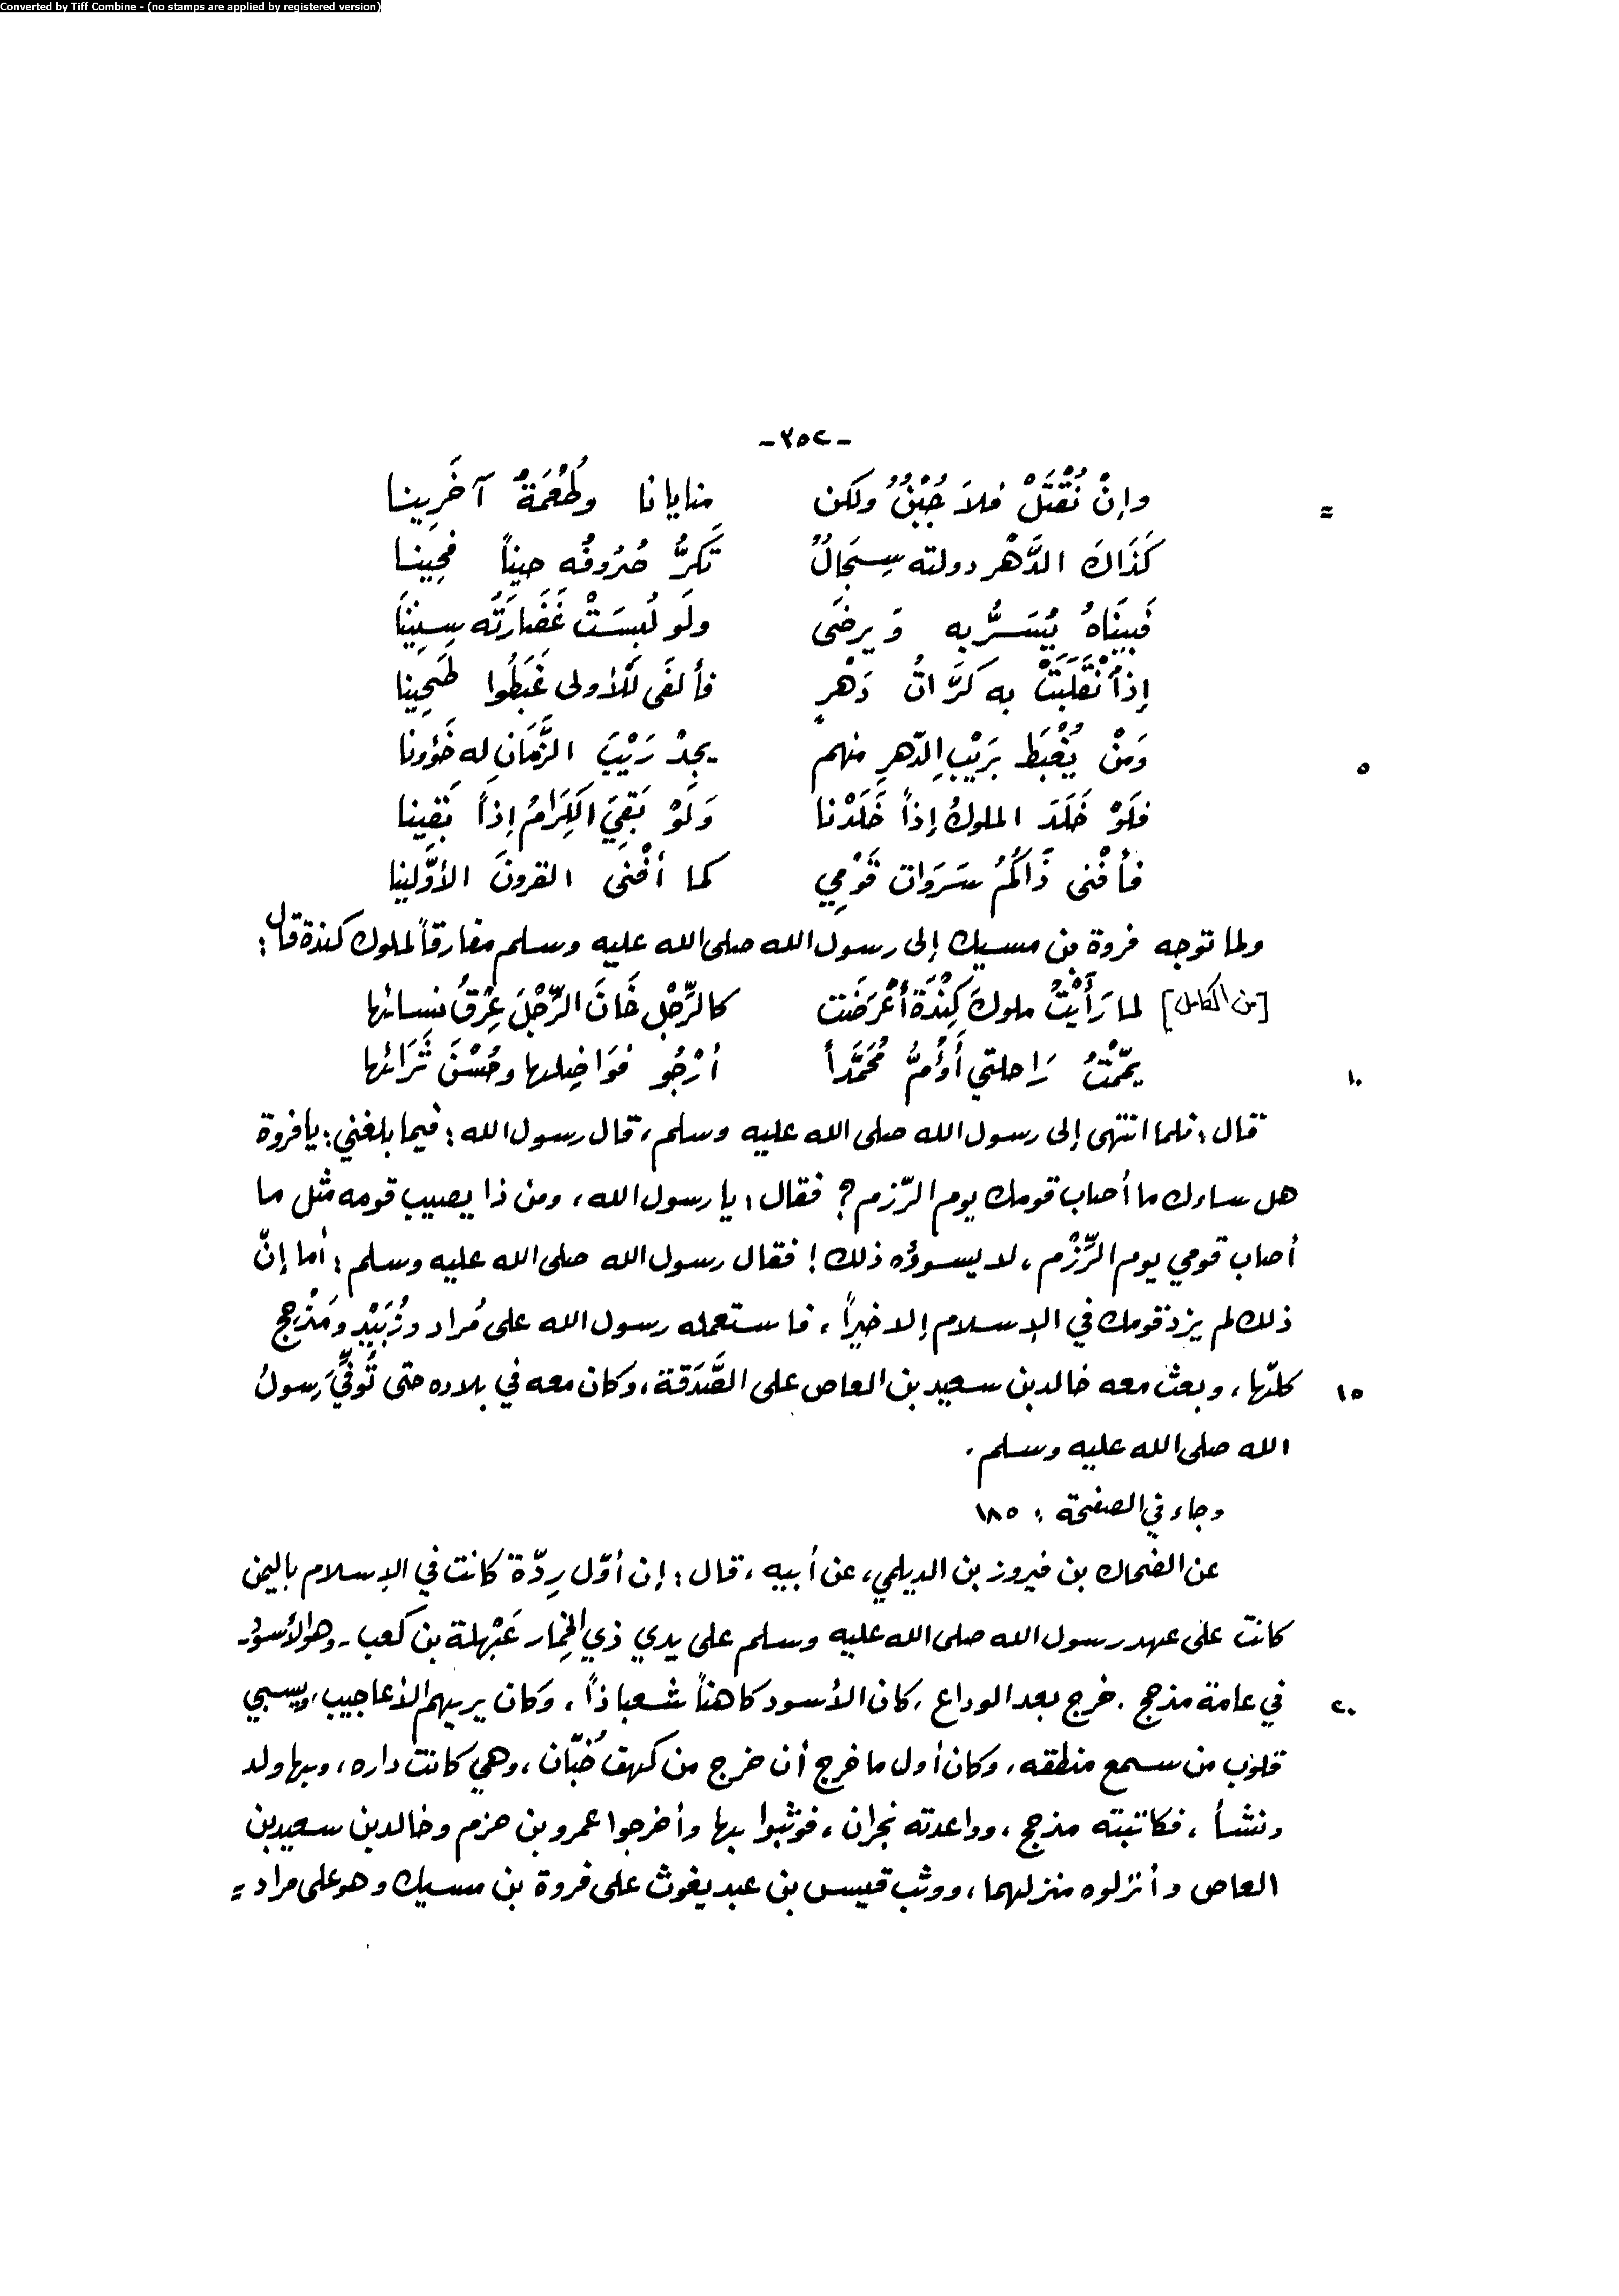 Converted by Tiff Combine - (no stamps are applied by registered version)
-٣٥٢-
= وإنْ نُقْتَلْ فلاَ جُبْنٌ ولكن منايانا وطُعْمَةُ آخَرِينا
كَذَاكَ الدَّهْر دولته سِجَالٌ تَكَرُّ صُرُوفُه حيناً فحِينا
فَبيَنَاهُ يُسَرُّ به وَيرضَى ولَو لُبِسَتْ غَضَارَتُه سِنِينَا
إذاْنْقَلَبَتْ به كَرَّاتُ دَهْرٍ فألفَى لَلْأولى غَبَطُوا طَحِينا
٥ وَمَنْ يُغْبَط بَرَيْبِ الدّهرِ منهم يجِدْ رَيْبَ الزَّمَانِ له خَؤونا
فلَوْ خَلَدَ الملوكُ إذاً خَلَدْنا وَلَوْ بَقِيَ الكِرَامُ إذاً بَقِينا
فأفْنى ذَاكُمُ سَرَوات قَوْمِي كما أفْنى القرونَ الأوّلينا
ولما توجه فروة بن مسيك إلى رسول الله صلى الله عليه وسلم مفارقاً لملوك كندة قال:
[من الكامل] لما رَأَيْتُ ملوكَ كِنْدَةَ أَعْرَضَت كالرِّجْلِ خَانَ الرِّجْلَ عِرْقُ نسائها
١٠ يمّمْتُ رَاحلتي أَؤُمُّ مُحَمَّداً أرْجُو فوَاضِلها وحُسْنَ ثَرَائها
قال: فلما انتهى إلى رسول الله صلى الله عليه وسلم، قال رسول الله: فيما بلغني: يا فروة
هل ساءك ما أصاب قومك يوم الرّزم؟ فقال: يا رسول الله، ومن ذا يصيب قومه مثل ما
أصاب قومي يوم الرِّزْم، لا يسوؤه ذلك! فقال رسول الله صلى الله عليه وسلم: أما إنّ
ذلك لم يزد قومك في الإسلام إلا خيراً، فاستعمله رسول الله على مُراد وزُبَيْد ومَذْحج
١٥ كلّها، وبعث معه خالد بن سعيد بن العاص على الصَّدَقة، وكان معه في بلاده حتى تُوفِّيَ رسولُ
الله صلى الله عليه وسلم.
وجاء في الصفحة: ١٨٥
عن الضحاك بن فيروز بن الديلمي، عن أبيه، قال: إن أوّل رِدّة كانت في الإسلام باليمن
كانت على عهد رسول الله صلى الله عليه وسلم على يدي ذي الخِمار عَبْهلة بن كعب - وهو الأسود -
٢٠ في عامة مذحج. خرج بعد الوداع، كان الأسود كاهناً شعباذاً، وكان يريهم الأعاجيب، ويسبي
قلوب من سمع منطقه، وكان أول ما خرج أن خرج من كهف خُبّان، وهي كانت داره، وبها ولد
ونشأ، فكاتبته مذحج، وواعدته نجران، فوثبوا بها وأخرجوا عمرو بن حزم وخالد بن سعيد بن
العاص وأنزلوه منزلهما، ووثب قيس بن عبد يغوث على فروة بن مسيك وهو على مراد =